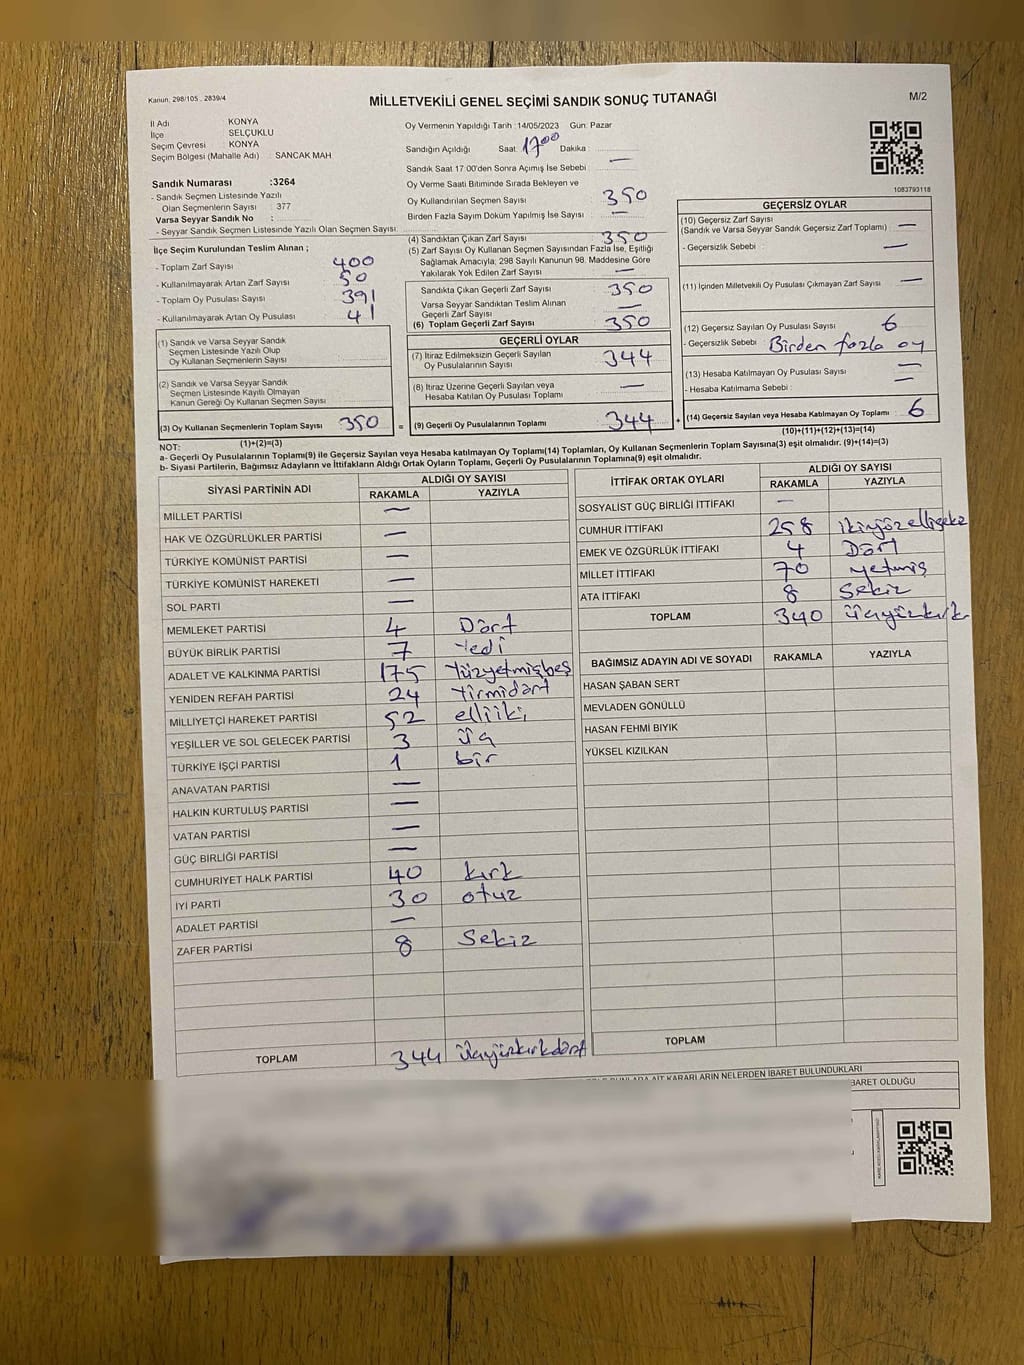 Kanun, 298/105 , 2839/4
MİLLETVEKİLİ GENEL SEÇİMİ SANDIK SONUÇ TUTANAĞI
M/2
İl Adı KONYA
İlçe SELÇUKLU
Seçim Çevresi KONYA
Seçim Bölgesi (Mahalle Adı) : SANCAK MAH
Sandık Numarası :3264
- Sandık Seçmen Listesinde Yazılı
Olan Seçmenlerin Sayısı : 377
Varsa Seyyar Sandık No :
- Seyyar Sandık Seçmen Listesinde Yazılı Olan Seçmen Sayısı:
İlçe Seçim Kurulundan Teslim Alınan ;
- Toplam Zarf Sayısı 400
- Kullanılmayarak Artan Zarf Sayısı 50
- Toplam Oy Pusulası Sayısı 391
- Kullanılmayarak Artan Oy Pusulası 41
(1) Sandık ve Varsa Seyyar Sandık
Seçmen Listesinde Yazılı Olup
Oy Kullanan Seçmenlerin Sayısı
(2) Sandık ve Varsa Seyyar Sandık
Seçmen Listesinde Kayıtlı Olmayan
Kanun Gereği Oy Kullanan Seçmen Sayısı
(3) Oy Kullanan Seçmenlerin Toplam Sayısı 350
(1)+(2)=(3)
Oy Vermenin Yapıldığı Tarih :14/05/2023 Gün: Pazar
Sandığın Açıldığı Saat: 17 00 Dakika :
Sandık Saat 17:00'den Sonra Açılmış İse Sebebi : —
Oy Verme Saati Bitiminde Sırada Bekleyen ve
Oy Kullandırılan Seçmen Sayısı 350
Birden Fazla Sayım Döküm Yapılmış İse Sayısı —
(4) Sandıktan Çıkan Zarf Sayısı 350
(5) Zarf Sayısı Oy Kullanan Seçmen Sayısından Fazla İse, Eşitliği
Sağlamak Amacıyla, 298 Sayılı Kanunun 98. Maddesine Göre
Yakılarak Yok Edilen Zarf Sayısı —
Sandıkta Çıkan Geçerli Zarf Sayısı : 350
Varsa Seyyar Sandıktan Teslim Alınan
Geçerli Zarf Sayısı —
(6) Toplam Geçerli Zarf Sayısı 350
GEÇERLİ OYLAR
(7) İtiraz Edilmeksizin Geçerli Sayılan
Oy Pusulalarının Sayısı 344
(8) İtiraz Üzerine Geçerli Sayılan veya
Hesaba Katılan Oy Pusulası Toplamı —
= (9) Geçerli Oy Pusulalarının Toplamı 344 +
1083793118
GEÇERSİZ OYLAR
(10) Geçersiz Zarf Sayısı —
(Sandık ve Varsa Seyyar Sandık Geçersiz Zarf Toplamı)
- Geçersizlik Sebebi : —
(11) İçinden Milletvekili Oy Pusulası Çıkmayan Zarf Sayısı —
(12) Geçersiz Sayılan Oy Pusulası Sayısı 6
- Geçersizlik Sebebi Birden fazla oy
(13) Hesaba Katılmayan Oy Pusulası Sayısı —
- Hesaba Katılmama Sebebi : —
(14) Geçersiz Sayılan veya Hesaba Katılmayan Oy Toplamı 6
(10)+(11)+(12)+(13)=(14)
NOT:
a- Geçerli Oy Pusulalarının Toplamı(9) ile Geçersiz Sayılan veya Hesaba katılmayan Oy Toplamı(14) Toplamları, Oy Kullanan Seçmenlerin Toplam Sayısına(3) eşit olmalıdır. (9)+(14)=(3)
b- Siyasi Partilerin, Bağımsız Adayların ve İttifakların Aldığı Ortak Oyların Toplamı, Geçerli Oy Pusulalarının Toplamına(9) eşit olmalıdır.
SİYASİ PARTİNİN ADI ALDIĞI OY SAYISI
RAKAMLA YAZIYLA
MİLLET PARTİSİ —
HAK VE ÖZGÜRLÜKLER PARTİSİ —
TÜRKİYE KOMÜNİST PARTİSİ —
TÜRKİYE KOMÜNİST HAREKETİ —
SOL PARTİ —
MEMLEKET PARTİSİ 4 Dört
BÜYÜK BİRLİK PARTİSİ 7 Yedi
ADALET VE KALKINMA PARTİSİ 175 Yüzyetmişbeş
YENİDEN REFAH PARTİSİ 24 Yirmidört
MİLLİYETÇİ HAREKET PARTİSİ 52 elliiki
YEŞİLLER VE SOL GELECEK PARTİSİ 3 üç
TÜRKİYE İŞÇİ PARTİSİ 1 bir
ANAVATAN PARTİSİ —
HALKIN KURTULUŞ PARTİSİ —
VATAN PARTİSİ —
GÜÇ BİRLİĞİ PARTİSİ —
CUMHURİYET HALK PARTİSİ 40 kırk
İYİ PARTİ 30 otuz
ADALET PARTİSİ —
ZAFER PARTİSİ 8 Sekiz
TOPLAM 344 üçyüzkırkdört
İTTİFAK ORTAK OYLARI ALDIĞI OY SAYISI
RAKAMLA YAZIYLA
SOSYALİST GÜÇ BİRLİĞİ İTTİFAKI —
CUMHUR İTTİFAKI 258 ikiyüzellisekiz
EMEK VE ÖZGÜRLÜK İTTİFAKI 4 Dört
MİLLET İTTİFAKI 70 yetmiş
ATA İTTİFAKI 8 Sekiz
TOPLAM 340 üçyüzkırk
BAĞIMSIZ ADAYIN ADI VE SOYADI RAKAMLA YAZIYLA
HASAN ŞABAN SERT
MEVLADEN GÖNÜLLÜ
HASAN FEHMİ BIYIK
YÜKSEL KIZILKAN
TOPLAM
KARARLARIN NELERDEN İBARET BULUNDUKLARI
İBARET OLDUĞU